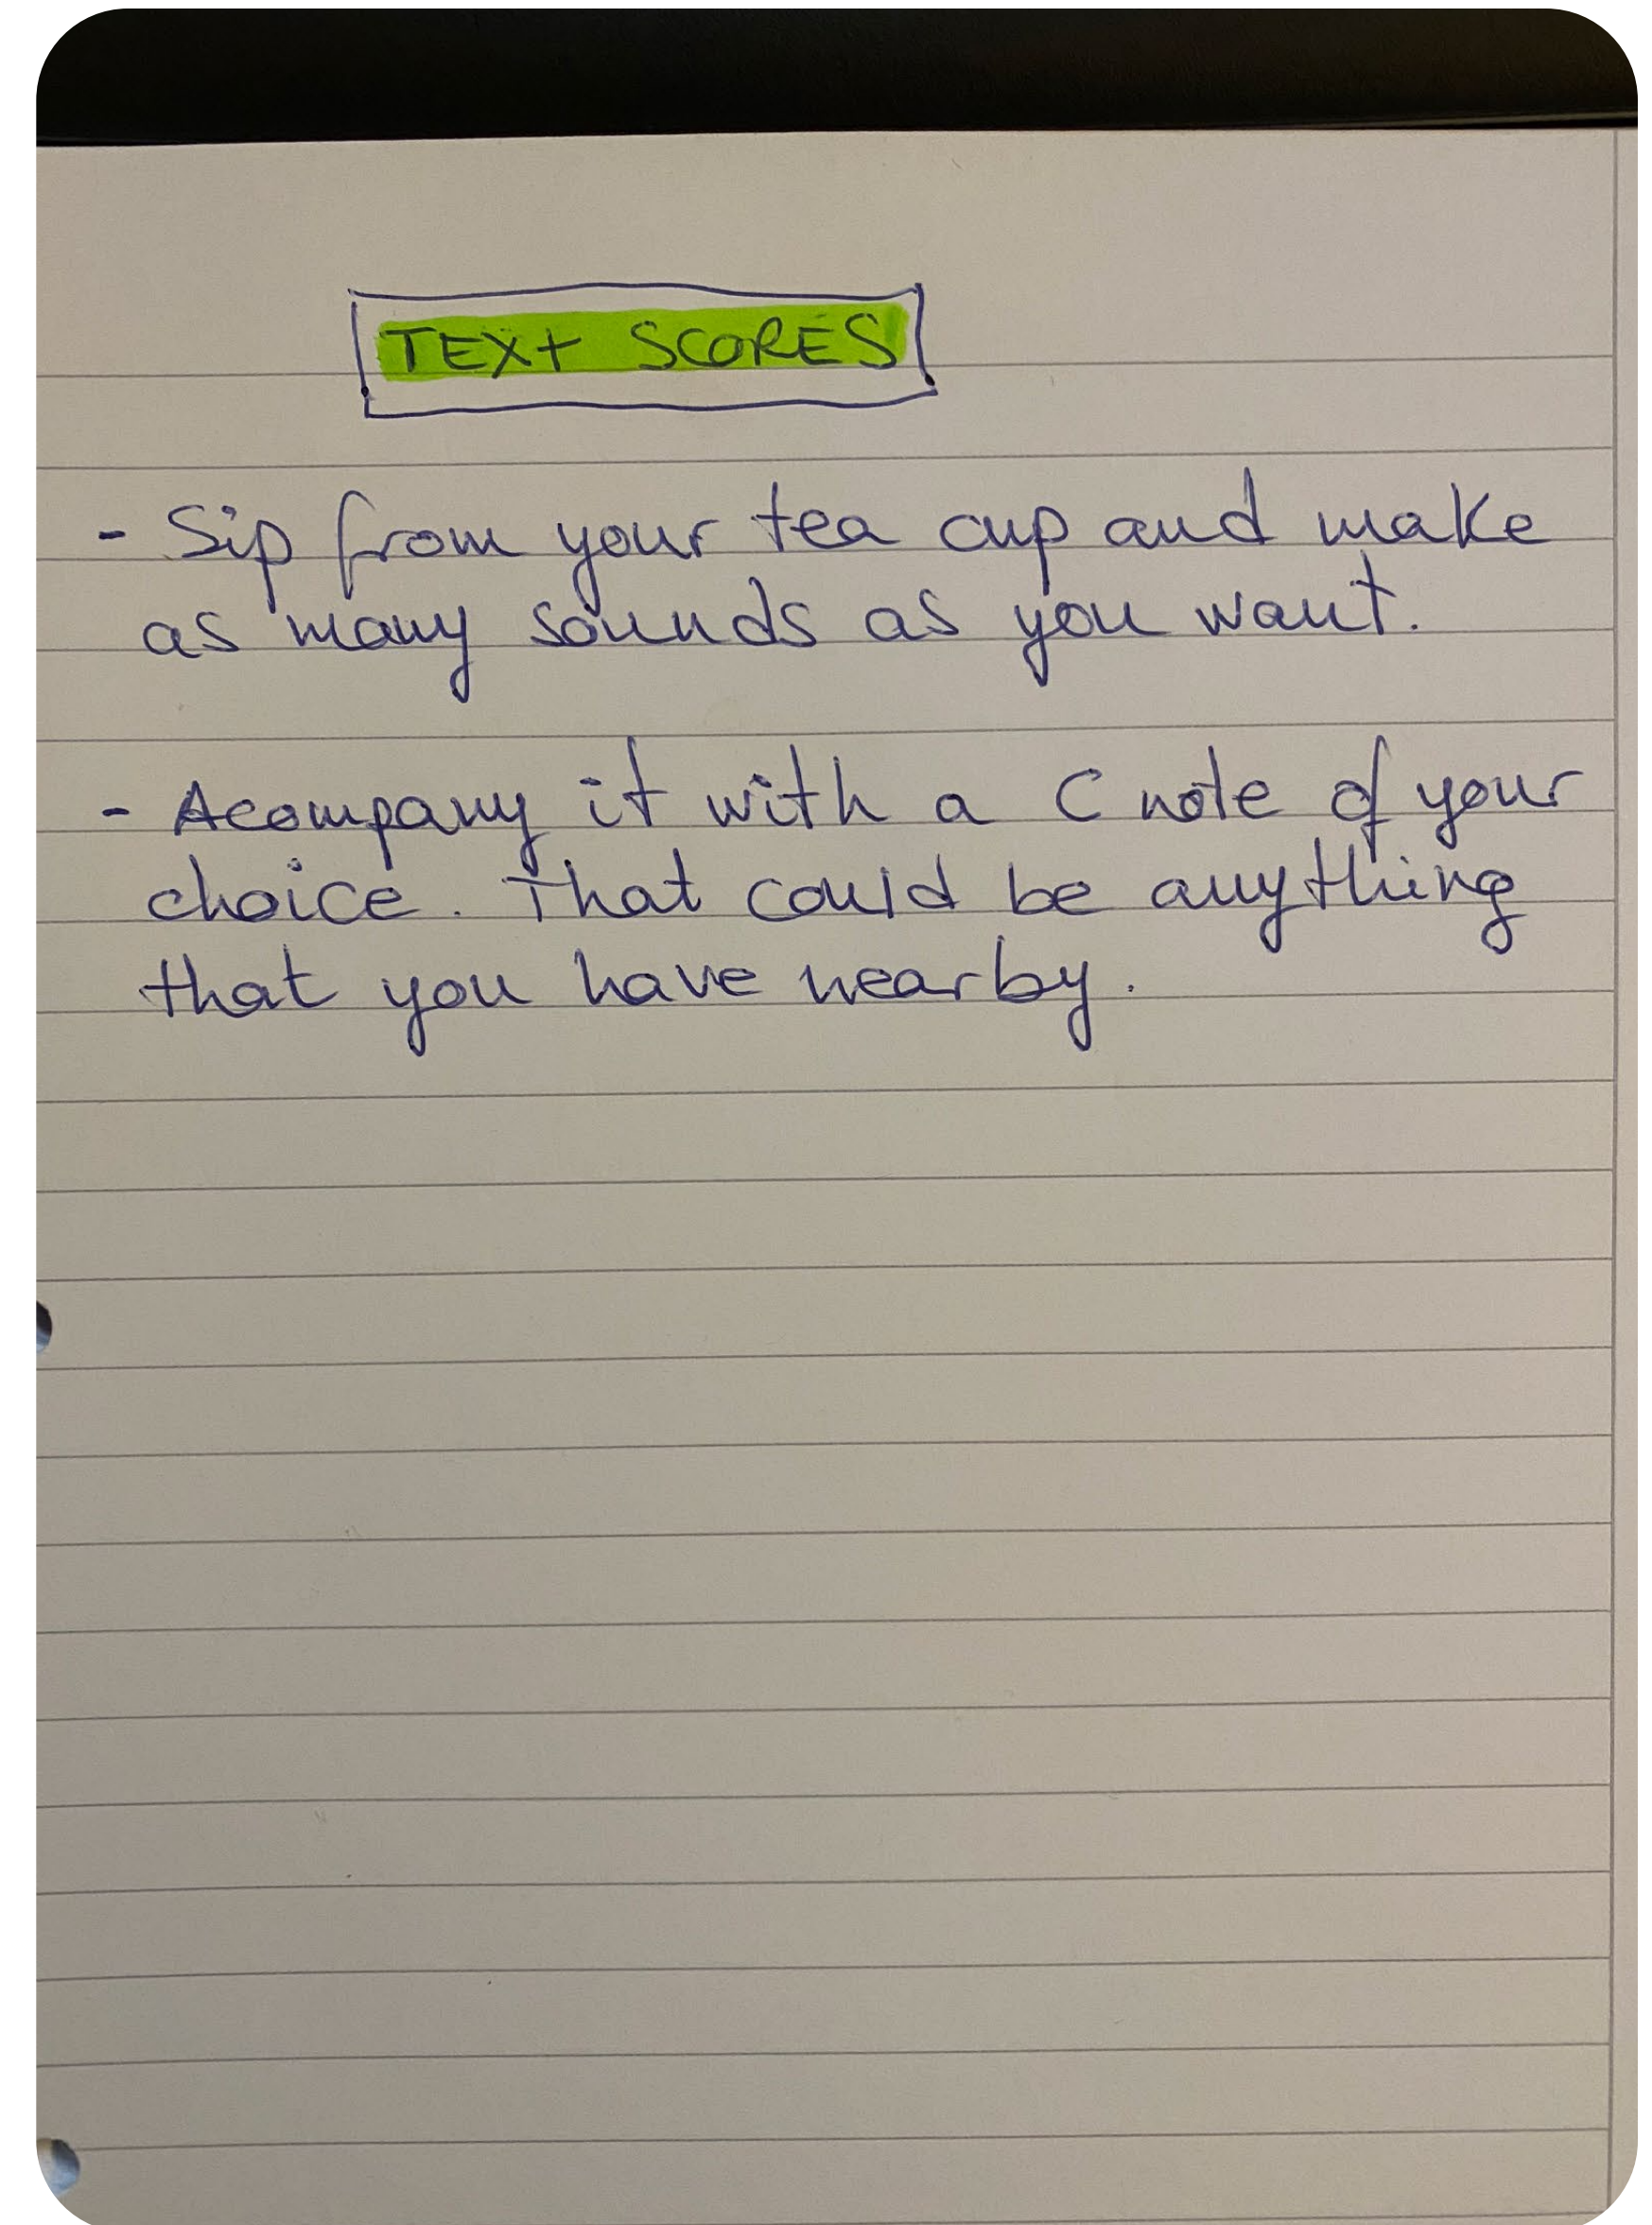 TEXT SCORES
- Sip from your tea cup and make
as many sounds as you want.
- Acompany it with a C note of your
choice. That could be anything
that you have nearby.